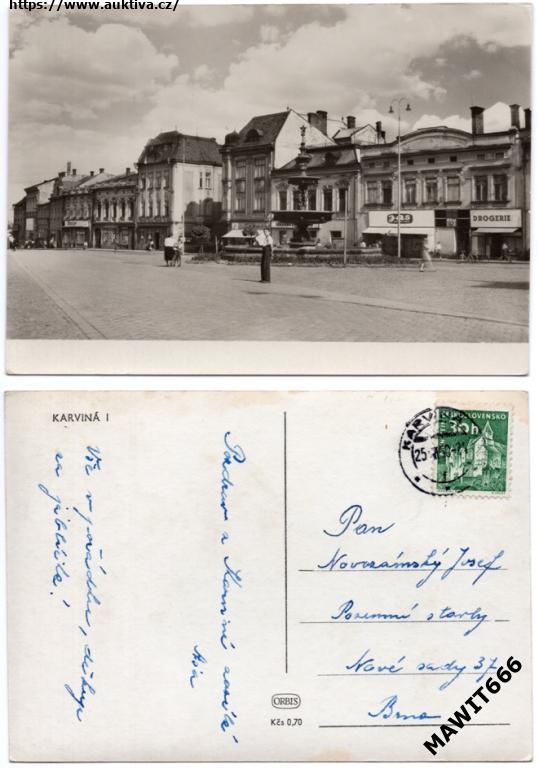 https://www.auktiva.cz/
DROGERIE
KARVINÁ I
Vše v pořádku, děkuji
za
Pozdrav z Karviné zasílá
KARVINÁ
25
ČESKOSLOVENSKO
30h
Pan
Novozámský Josef
Pozemní stavby
Nové sady 37
Brno
ORBIS
Kčs 0,70
MAWIT666